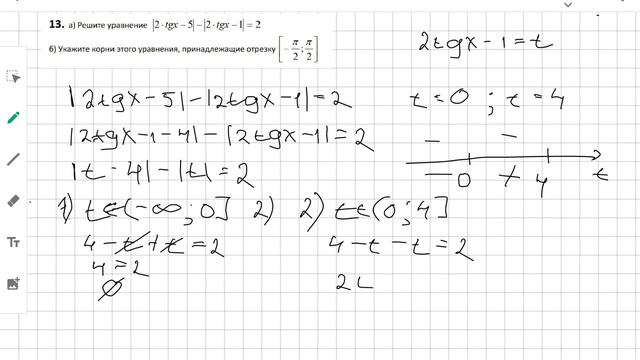 13. а) Решите уравнение |2·tgx−5|−|2·tgx−1|=2
б) Укажите корни этого уравнения, принадлежащие отрезку [−π/2; π/2]
2tgx−1=t
|2tgx−5|−|2tgx−1|=2
t=0 ; t=4
|2tgx−1−4|−|2tgx−1|=2
|t−4|−|t|=2
− −
− 0 + 4 t
1) t∈(−∞;0] 2) 2) t∈(0;4]
4−t+t=2
4−t−t=2
4=2
∅
2
Тт